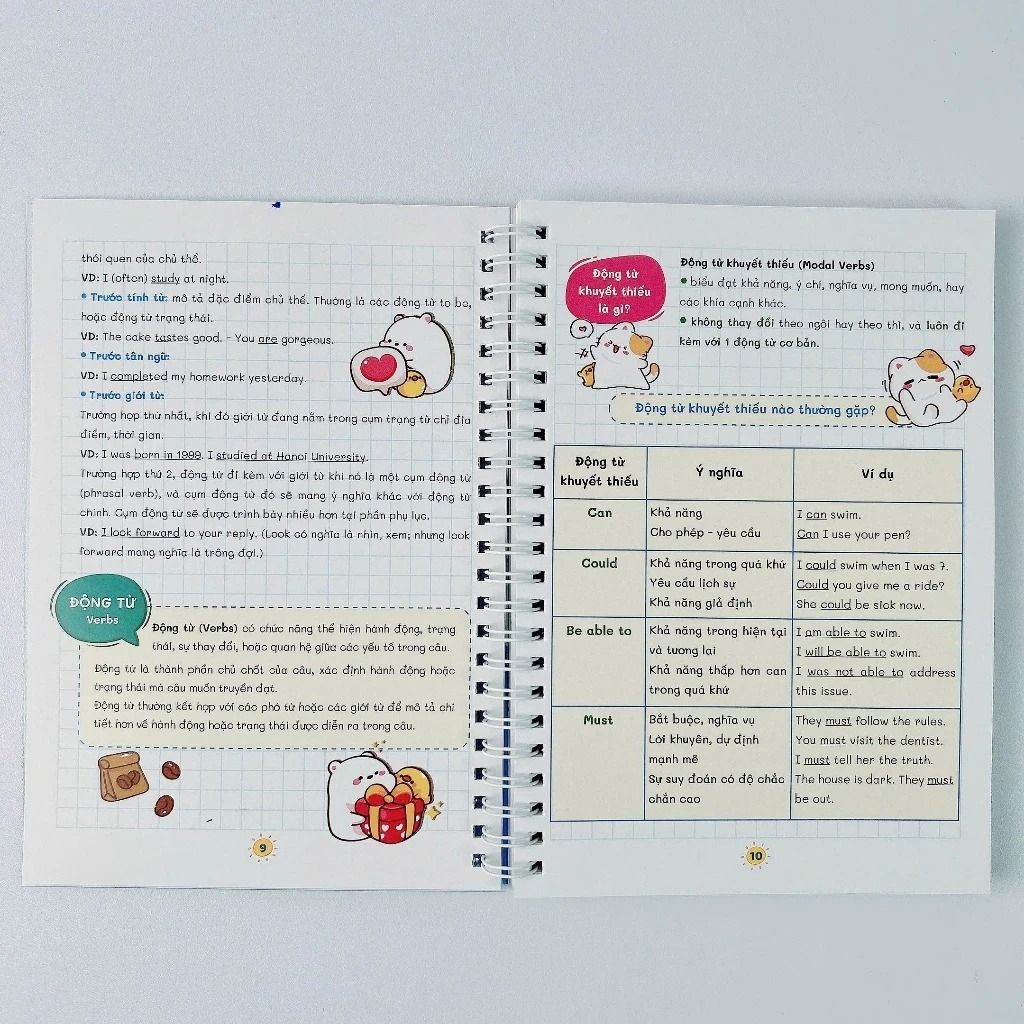 thói quen của chủ thể.
VD: I (often) study at night.
• Trước tính từ: mô tả đặc điểm chủ thể. Thường là các động từ to be,
hoặc động từ trạng thái.
VD: The cake tastes good. - You are gorgeous.
• Trước tân ngữ:
VD: I completed my homework yesterday.
• Trước giới từ:
Trường hợp thứ nhất, khi đó giới từ đang nằm trong cụm trạng từ chỉ địa
điểm, thời gian.
VD: I was born in 1999. I studied at Hanoi University.
Trường hợp thứ 2, động từ đi kèm với giới từ khi nó là một cụm động từ
(phrasal verb), và cụm động từ đó sẽ mang ý nghĩa khác với động từ
chính. Cụm động từ sẽ được trình bày nhiều hơn tại phần phụ lục.
VD: I look forward to your reply. (Look có nghĩa là nhìn, xem; nhưng look
forward mang nghĩa là trông đợi.)
ĐỘNG TỪ
Verbs
Động từ (Verbs) có chức năng thể hiện hành động, trạng
thái, sự thay đổi, hoặc quan hệ giữa các yếu tố trong câu.
Động từ là thành phần chủ chốt của câu, xác định hành động hoặc
trạng thái mà câu muốn truyền đạt.
Động từ thường kết hợp với các phó từ hoặc các giới từ để mô tả chi
tiết hơn về hành động hoặc trạng thái được diễn ra trong câu.
9
Động từ
khuyết thiếu
là gì?
Động từ khuyết thiếu (Modal Verbs)
• biểu đạt khả năng, ý chí, nghĩa vụ, mong muốn, hay
các khía cạnh khác.
• không thay đổi theo ngôi hay theo thì, và luôn đi
kèm với 1 động từ cơ bản.
Động từ khuyết thiếu nào thường gặp?
Động từ
khuyết thiếu
Ý nghĩa
Ví dụ
Can
Khả năng
Cho phép - yêu cầu
I can swim.
Can I use your pen?
Could
Khả năng trong quá khứ
Yêu cầu lịch sự
Khả năng giả định
I could swim when I was 7.
Could you give me a ride?
She could be sick now.
Be able to
Khả năng trong hiện tại
và tương lai
Khả năng thấp hơn can
trong quá khứ
I am able to swim.
I will be able to swim.
I was not able to address
this issue.
Must
Bắt buộc, nghĩa vụ
Lời khuyên, dự định
mạnh mẽ
Sự suy đoán có độ chắc
chắn cao
They must follow the rules.
You must visit the dentist.
I must tell her the truth.
The house is dark. They must
be out.
10